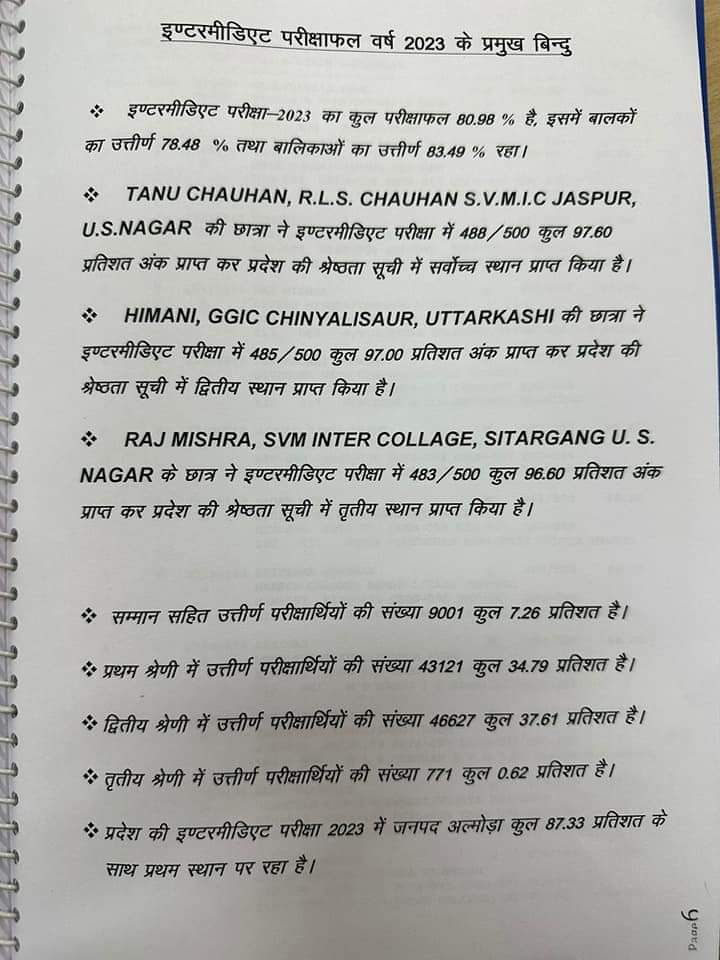 इण्टरमीडिएट परीक्षाफल वर्ष 2023 के प्रमुख बिन्दु
❖ इण्टरमीडिएट परीक्षा–2023 का कुल परीक्षाफल 80.98 % है, इसमें बालकों
का उत्तीर्ण 78.48 % तथा बालिकाओं का उत्तीर्ण 83.49 % रहा।
❖ TANU CHAUHAN, R.L.S. CHAUHAN S.V.M.I.C JASPUR,
U.S.NAGAR की छात्रा ने इण्टरमीडिएट परीक्षा में 488/500 कुल 97.60
प्रतिशत अंक प्राप्त कर प्रदेश की श्रेष्ठता सूची में सर्वोच्च स्थान प्राप्त किया है।
❖ HIMANI, GGIC CHINYALISAUR, UTTARKASHI की छात्रा ने
इण्टरमीडिएट परीक्षा में 485/500 कुल 97.00 प्रतिशत अंक प्राप्त कर प्रदेश की
श्रेष्ठता सूची में द्वितीय स्थान प्राप्त किया है।
❖ RAJ MISHRA, SVM INTER COLLAGE, SITARGANG U. S.
NAGAR के छात्र ने इण्टरमीडिएट परीक्षा में 483/500 कुल 96.60 प्रतिशत अंक
प्राप्त कर प्रदेश की श्रेष्ठता सूची में तृतीय स्थान प्राप्त किया है।
❖ सम्मान सहित उत्तीर्ण परीक्षार्थियों की संख्या 9001 कुल 7.26 प्रतिशत है।
❖ प्रथम श्रेणी में उत्तीर्ण परीक्षार्थियों की संख्या 43121 कुल 34.79 प्रतिशत है।
❖ द्वितीय श्रेणी में उत्तीर्ण परीक्षार्थियों की संख्या 46627 कुल 37.61 प्रतिशत है।
❖ तृतीय श्रेणी में उत्तीर्ण परीक्षार्थियों की संख्या 771 कुल 0.62 प्रतिशत है।
❖ प्रदेश की इण्टरमीडिएट परीक्षा 2023 में जनपद अल्मोड़ा कुल 87.33 प्रतिशत के
साथ प्रथम स्थान पर रहा है।
Page